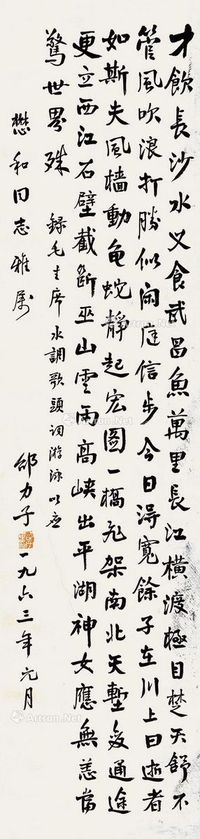 才飲長沙水又食武昌魚萬里長江橫渡極目楚天舒不
管風吹浪打勝似閑庭信步今日得寬餘子在川上曰逝者
如斯夫風檣動龜蛇靜起宏圖一橋飛架南北天塹變通途
更立西江石壁截斷巫山雲雨高峽出平湖神女應無恙當
驚世界殊 錄毛主席水調歌頭詞游泳以應
懋和同志雅屬 邵力子 一九六三年元月